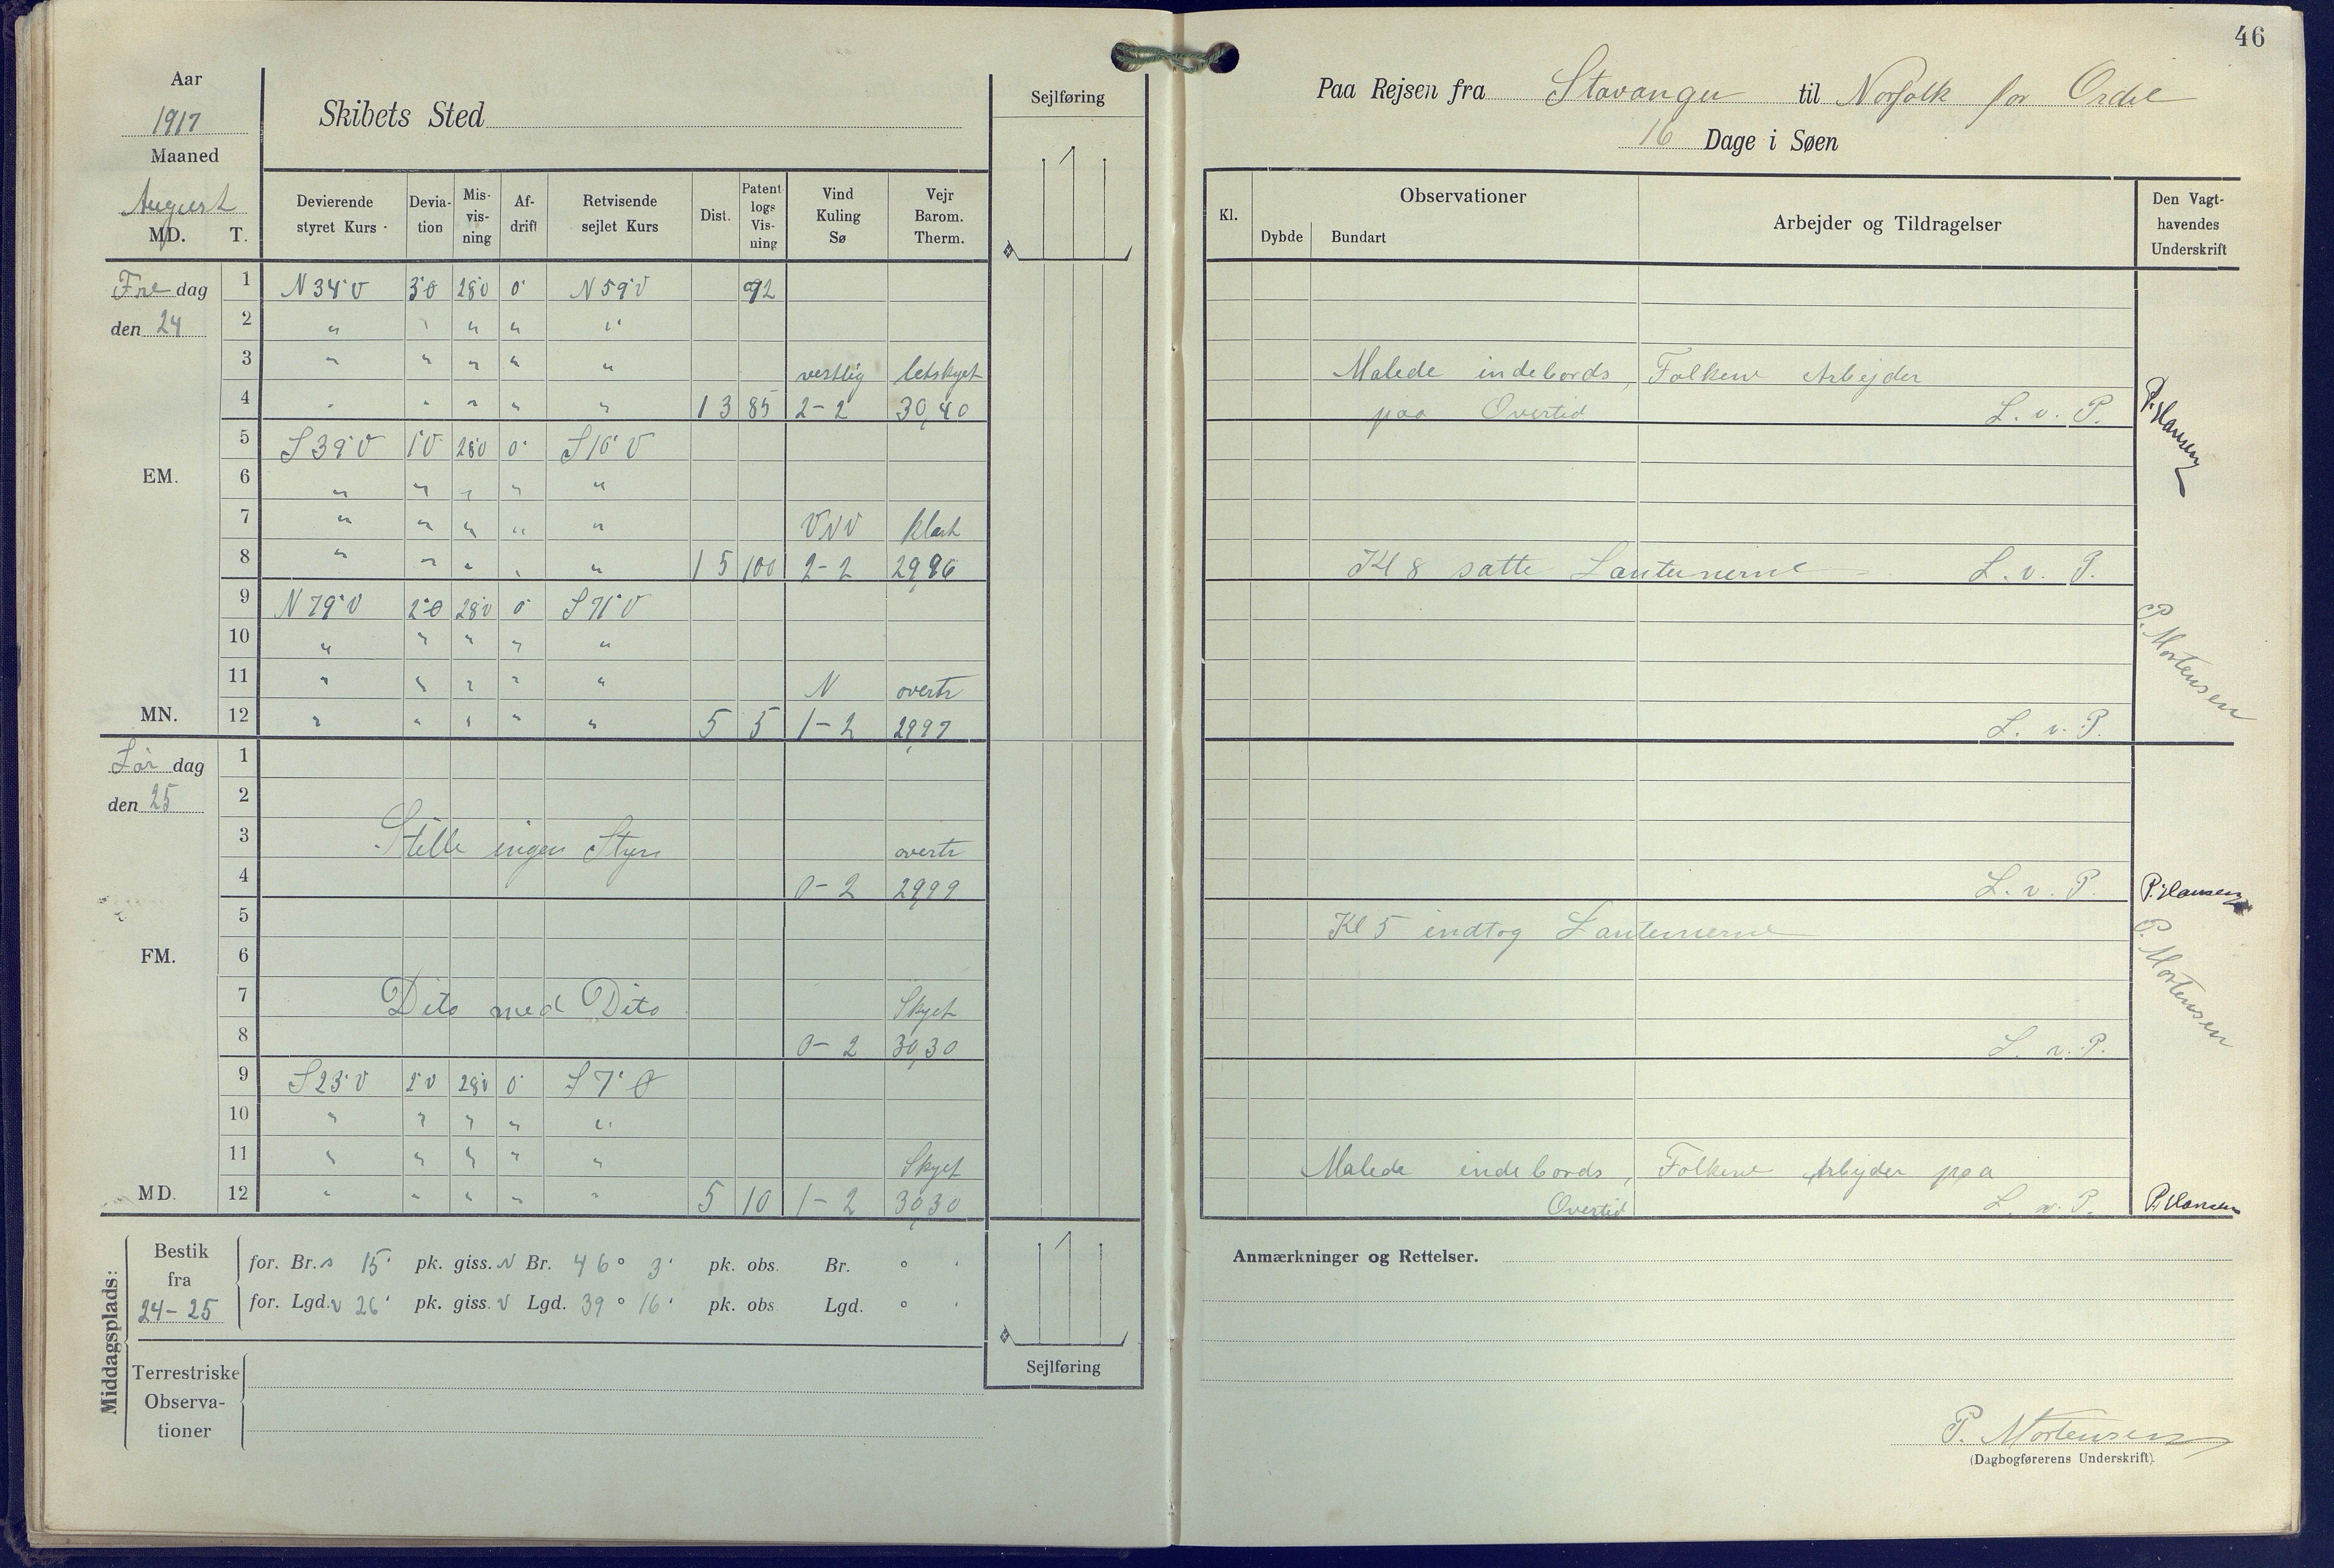 Aar
1917
Maaned
August
MD. T.
Skibets Sted
Sejlføring
Devierende styret Kurs Devia- tion Mis- vis- ning Af- drift Retvisende sejlet Kurs Dist. Patent logs Vis- ning Vind Kuling Sø Vejr Barom. Therm.
Fre dag 1 N 34° V 3°Ø 28°V 0° N 59° V 92
den 24 2 " " " " "
3 " " " " " vestlig letskyet
4 " " " " " 13 85 2-2 30,40
5 S 39° V 1°V 28°V 0° S 10° V
EM. 6 " " " " "
7 " " " " " VNV klart
8 " " " " " 15 100 2-2 29,96
9 N 79° V 2°Ø 28°V 0° S 71° V
10 " " " " "
11 " " " " " N overtr
MN. 12 " " " " " 5 5 1-2 29,97
Lør dag 1
den 25 2
3 Stille ingen Styr overtr
4 0-2 29,99
5
FM. 6
7 Dito med Dito Skyet
8 0-2 30,30
9 S 23° V 2°V 28°V 0° S 7° Ø
10 " " " " "
11 " " " " " Skyet
MD. 12 " " " " " 5 10 1-2 30,30
Middagsplads:
Bestik fra 24-25
for. Br. s 15' pk. giss. N Br. 46° 3' pk. obs. Br. ° '
for. Lgd. v 26' pk. giss. V Lgd. 39° 16' pk. obs. Lgd. ° '
Terrestriske
Observa-
tioner
Sejlføring
46
Paa Rejsen fra Stavanger til Norfolk for Ordre
16 Dage i Søen
Kl. Observationer Dybde Bundart Arbejder og Tildragelser Den Vagt- havendes Underskrift
Malede indebords, Folkene Arbejder
paa Overtid L. v. P. P. Hansen
Kl 8 satte Lanternerne L. v. P.
P. Mortensen
L. v. P.
L. v. P. P. Hansen
Kl 5 indtog Lanternerne
P. Mortensen
L. v. P.
Malede indebords, Folkene Arbejder paa
Overtid L. v. P. P. Hansen
Anmærkninger og Rettelser.
P. Mortensen
(Dagbogførerens Underskrift).